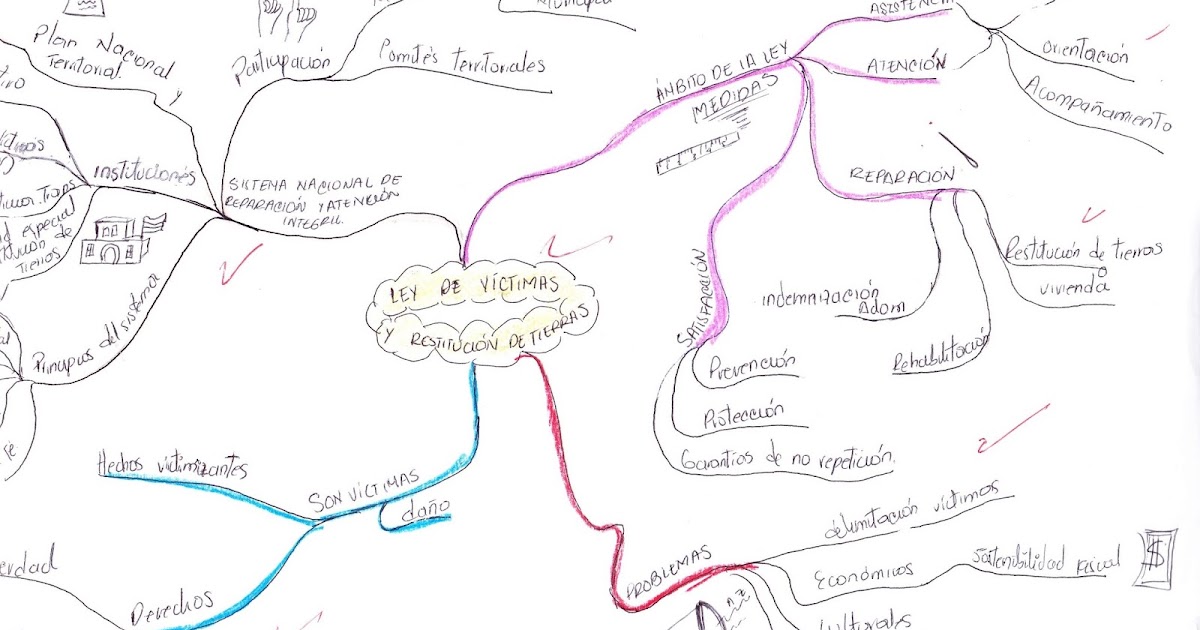 LEY DE VÍCTIMAS
Y RESTITUCIÓN DE TIERRAS
ÁMBITO DE LA LEY
MEDIDAS
ATENCIÓN
Orientación
Acompañamiento
REPARACIÓN
Restitución de tierras
o
vivienda
Rehabilitación
indemnización
Adom
SATISFACCIÓN
Prevención
Protección
Garantias de no repetición.
PROBLEMAS
delimitación víctimas
Económicos
Sostenibilidad Fiscal
$
Culturales
A Z
SON VÍCTIMAS
daño
Hechos victimizantes
Derechos
SISTEMA NACIONAL DE
REPARACIÓN Y ATENCIÓN
INTEGRIL
Participación
Pomités territoriales
Plan Nacional
Territorial.
y
instituciones
especial
de
tierras
Principios del sistema